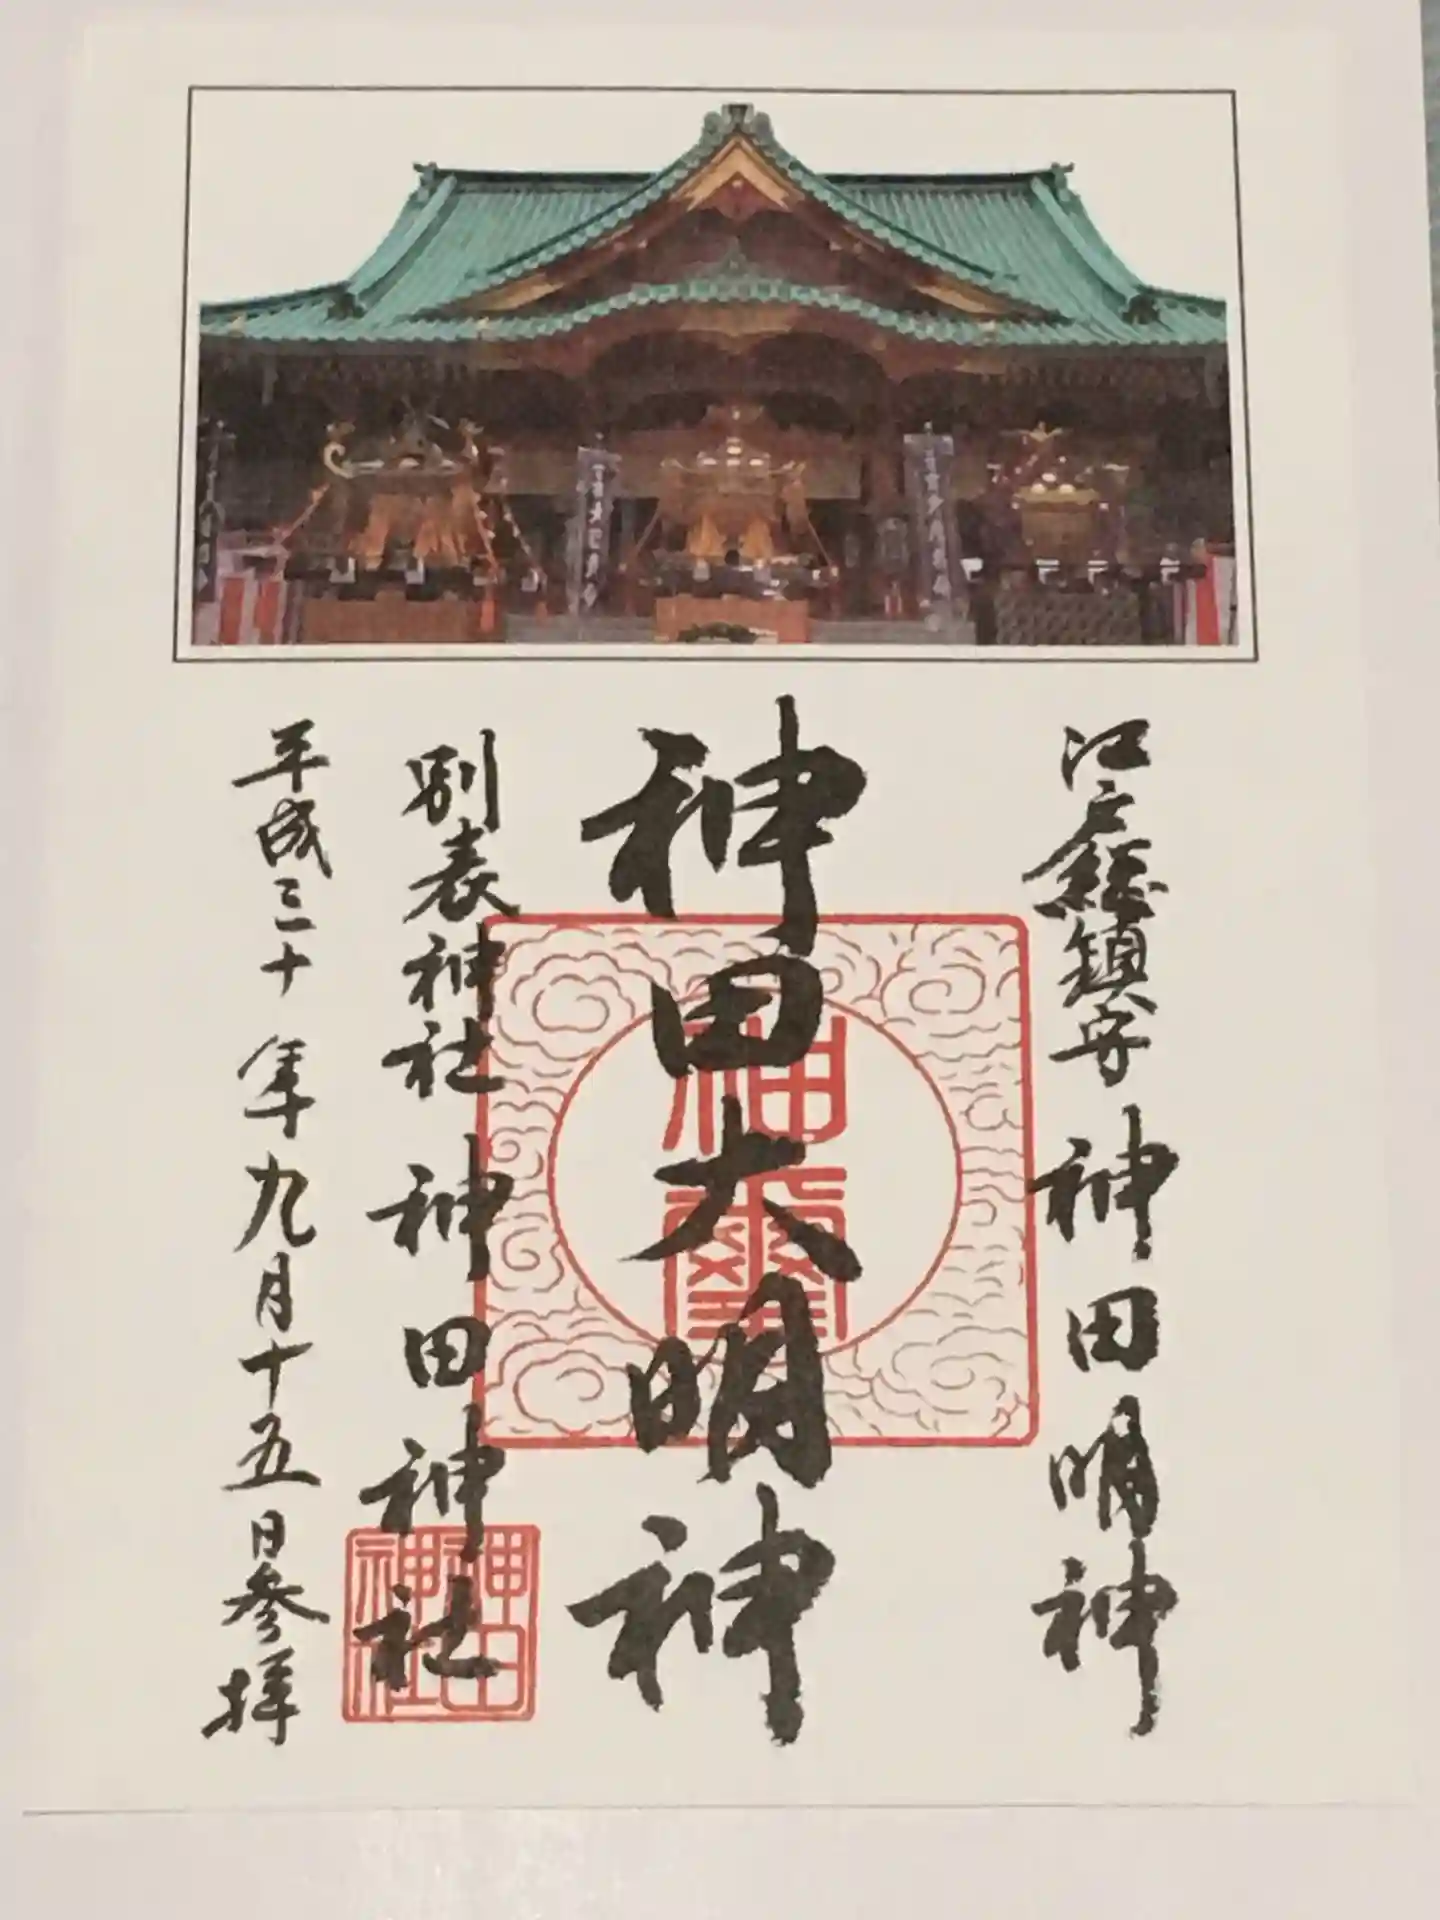 江戸総鎮守 神田明神
神田大明神
別表神社 神田神社
平成三十年 九月十五日参拝
神璽
神田
神社